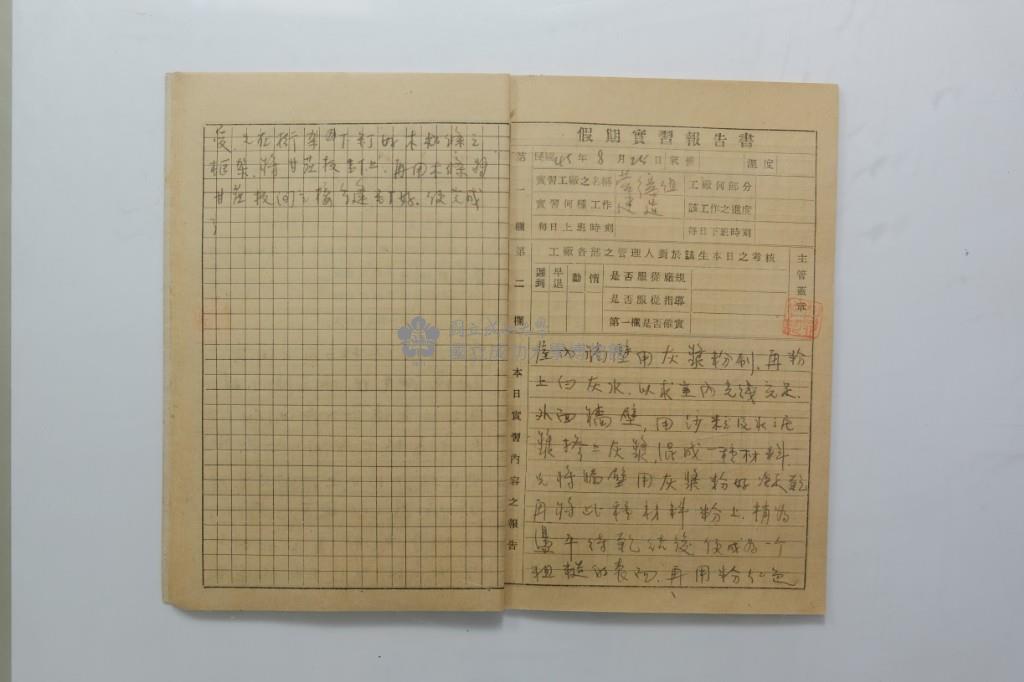 假期實習報告書
第一欄
民國45年8月25日氣候 溫度
實習工廠之名稱 營繕組 工廠何部分
實習何種工作 建造 該工作之進度
每日上班時刻 每日下班時刻
第二欄
工廠各部之管理人對於該生本日之考核
主管蓋章
遲到 早退 勤 惰
是否服從廠規
是否服從指導
第一欄是否確實
本日實習內容之報告
屋內牆壁用灰漿粉刷,再粉
上白灰水,以求室內光線充足.
外面牆壁,用沙粉及水泥
漿摻入灰漿,混成一種材料.
先將牆壁用灰漿粉好
再將此種材料粉上,稍為
盪平待乾結後便成為一個
粗糙的表面,再用粉紅色
先在桁架下釘好木板條之
框架,將甘蔗板釘上,再用木條將
甘蔗板間之接縫釘好,便完成
國立成功大學
國立成功大學博物館